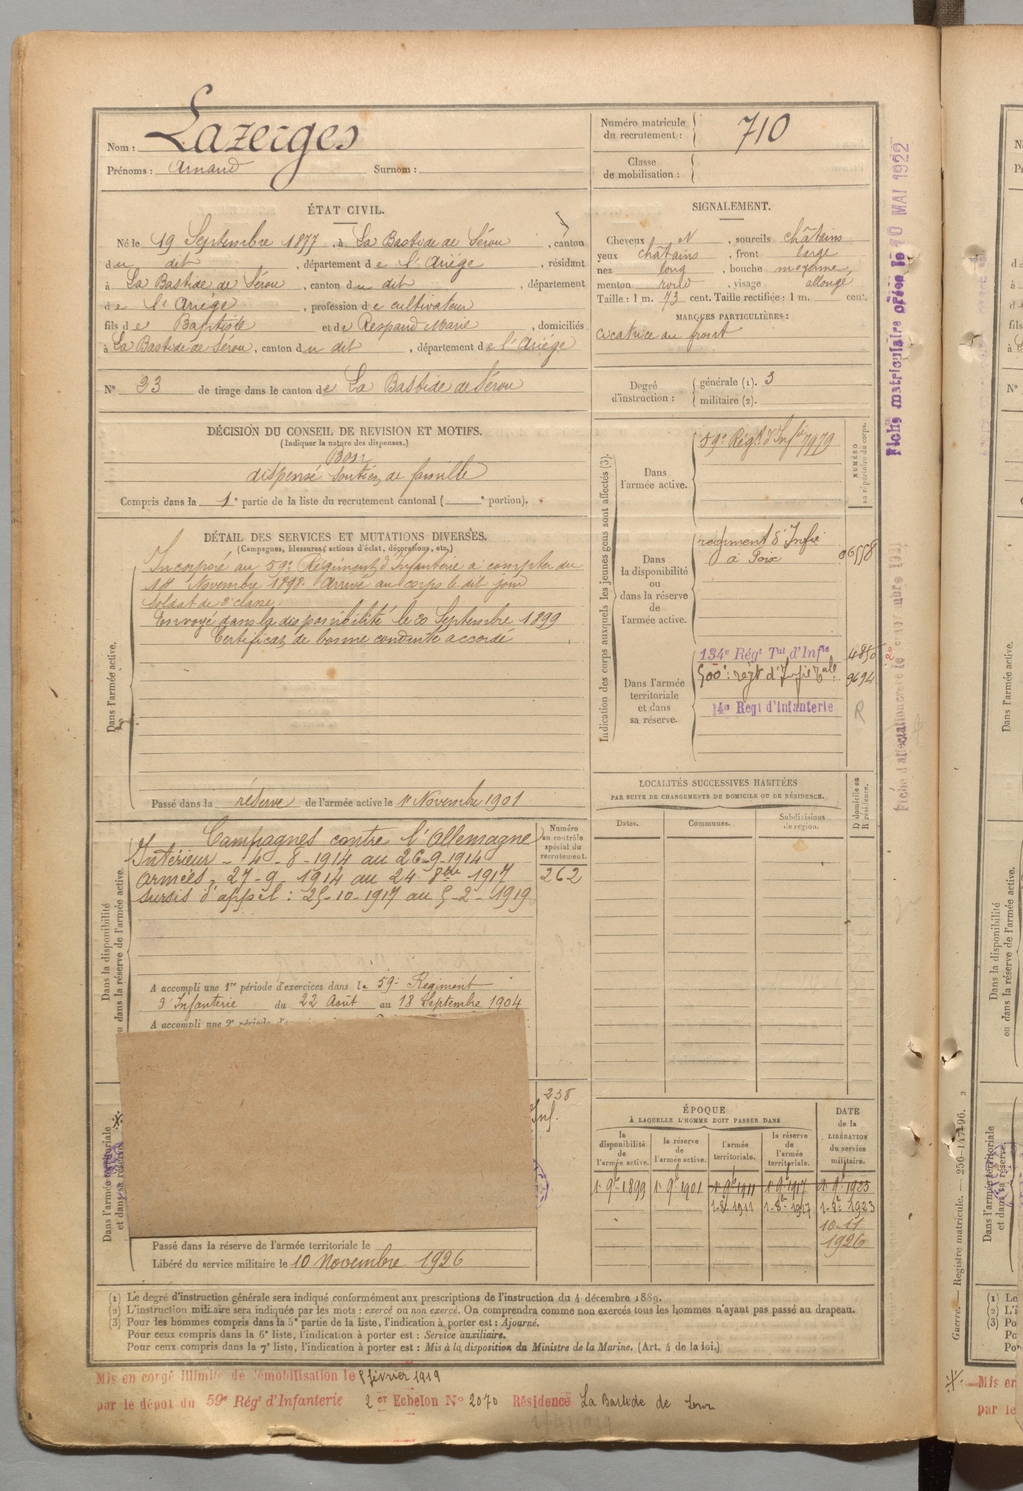 Nom : Lazerges
Prénoms : Arnaud Surnom :
Numéro matricule du recrutement : 710
Classe de mobilisation :
ÉTAT CIVIL.
Né le 19 Septembre 1877, à La Bastide de Sérou, canton
du dit, département de l'Ariége, résidant
à La Bastide de Sérou, canton du dit, département
de l'Ariége, profession de cultivateur
fils de Baptiste et de Respaud Marie, domiciliés
à La Bastide de Sérou, canton du dit, département de l'Ariége
N° 33 de tirage dans le canton de La Bastide de Sérou
SIGNALEMENT.
Cheveux N, sourcils châtains
yeux châtains, front large
nez long, bouche moyenne,
menton rond, visage allongé
Taille : 1 m. 73 cent. Taille rectifiée : 1 m. cent.
MARQUES PARTICULIÈRES :
cicatrice au front
Degré d'instruction : générale (1). 3
militaire (2).
DÉCISION DU CONSEIL DE REVISION ET MOTIFS.
(Indiquer la nature des dispenses.)
Bon
dispensé soutien de famille
Compris dans la 1e partie de la liste du recrutement cantonal ( e portion).
DÉTAIL DES SERVICES ET MUTATIONS DIVERSES.
(Campagnes, blessures, actions d'éclat, décorations, etc.)
Dans l'armée active.
Incorporé au 59e Régiment d'Infanterie à compter du
14 Novembre 1898. Arrivé au corps le dit jour
soldat de 2e classe
Envoyé dans la disponibilité le 20 Septembre 1899
Certificat de bonne conduite accordé
Passé dans la réserve de l'armée active le 1er Novembre 1901
Indication des corps auxquels les jeunes gens sont affectés (3).
NUMÉRO au répertoire du corps.
Dans l'armée active.
59e Régt d'Infie 7979
Dans la disponibilité ou dans la réserve de l'armée active.
régiment d'Infie
à Foix
Dans l'armée territoriale et dans sa réserve.
134e Régt Tal d'Infie 4850
500e régt d'Infie Tale 9694
14e Regt d'Infanterie R
LOCALITÉS SUCCESSIVES HABITÉES
PAR SUITE DE CHANGEMENTS DE DOMICILE OU DE RÉSIDENCE.
Dates. Communes. Subdivisions de région. D domicile ou R résidence.
Dans la disponibilité ou dans la réserve de l'armée active.
Numéro au contrôle spécial du recrutement.
262
Campagnes contre l'Allemagne
Intérieur - 4-8-1914 au 26-9-1914
Armées, 27-9 1914 au 24 8bre 1917
Sursis d'appel : 25-10-1917 au 5-2-1919
A accompli une 1re période d'exercices dans le 59e Régiment
d'Infanterie du 22 Août au 18 Septembre 1904
A accompli une 2e période
Dans l'armée territoriale et dans sa réserve
238
Inf.
Passé dans la réserve de l'armée territoriale le
Libéré du service militaire le 10 Novembre 1926
ÉPOQUE
À LAQUELLE L'HOMME DOIT PASSER DANS
la disponibilité de l'armée active. la réserve de l'armée active. l'armée territoriale. la réserve de l'armée territoriale. DATE de la LIBÉRATION du service militaire.
1er 9bre 1899 1er 9bre 1901 1er 9bre 1911 1er 9bre 1917 1er 9bre 1923
1-8bre 1911 1-8bre 1917 1-8bre 1923
10-11
1926
(1) Le degré d'instruction générale sera indiqué conformément aux prescriptions de l'instruction du 4 décembre 1889.
(2) L'instruction militaire sera indiquée par les mots : exercé ou non exercé. On comprendra comme non exercés tous les hommes n'ayant pas passé au drapeau.
(3) Pour les hommes compris dans la 5e partie de la liste, l'indication à porter est : Ajourné.
Pour ceux compris dans la 6e liste, l'indication à porter est : Service auxiliaire.
Pour ceux compris dans la 7e liste, l'indication à porter est : Mis à la disposition du Ministre de la Marine. (Art. 4 de la loi.)
Mis en congé illimité de démobilisation le 5 février 1919
par le dépot du 59e Régt d'Infanterie 2er Echelon No 2070 Résidence La Bastide de Serou
Fiche matriculaire créée le 10 MAI 1922
Guerre. — Registre matricule. — 256-147-96.